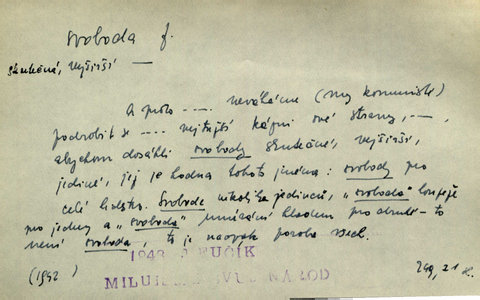 svoboda f.
skutečná, nejširší —
A proto -.-. neváháme (my komunisté)
podrobit se -.-. nejtužší kázni své strany, -.-,
abychom dosáhli svobody skutečné, nejširší,
jediné, jež je hodna tohoto jména: svobody pro
celé lidstvo. Svoboda několika jedinců, "svoboda" loupeže
pro jedny a "svoboda" umírání hladem pro druhé - to
není svoboda, to je naopak poroba všech.
1943 J. FUČÍK
(1942)
MILUJEME SVŮJ NÁROD